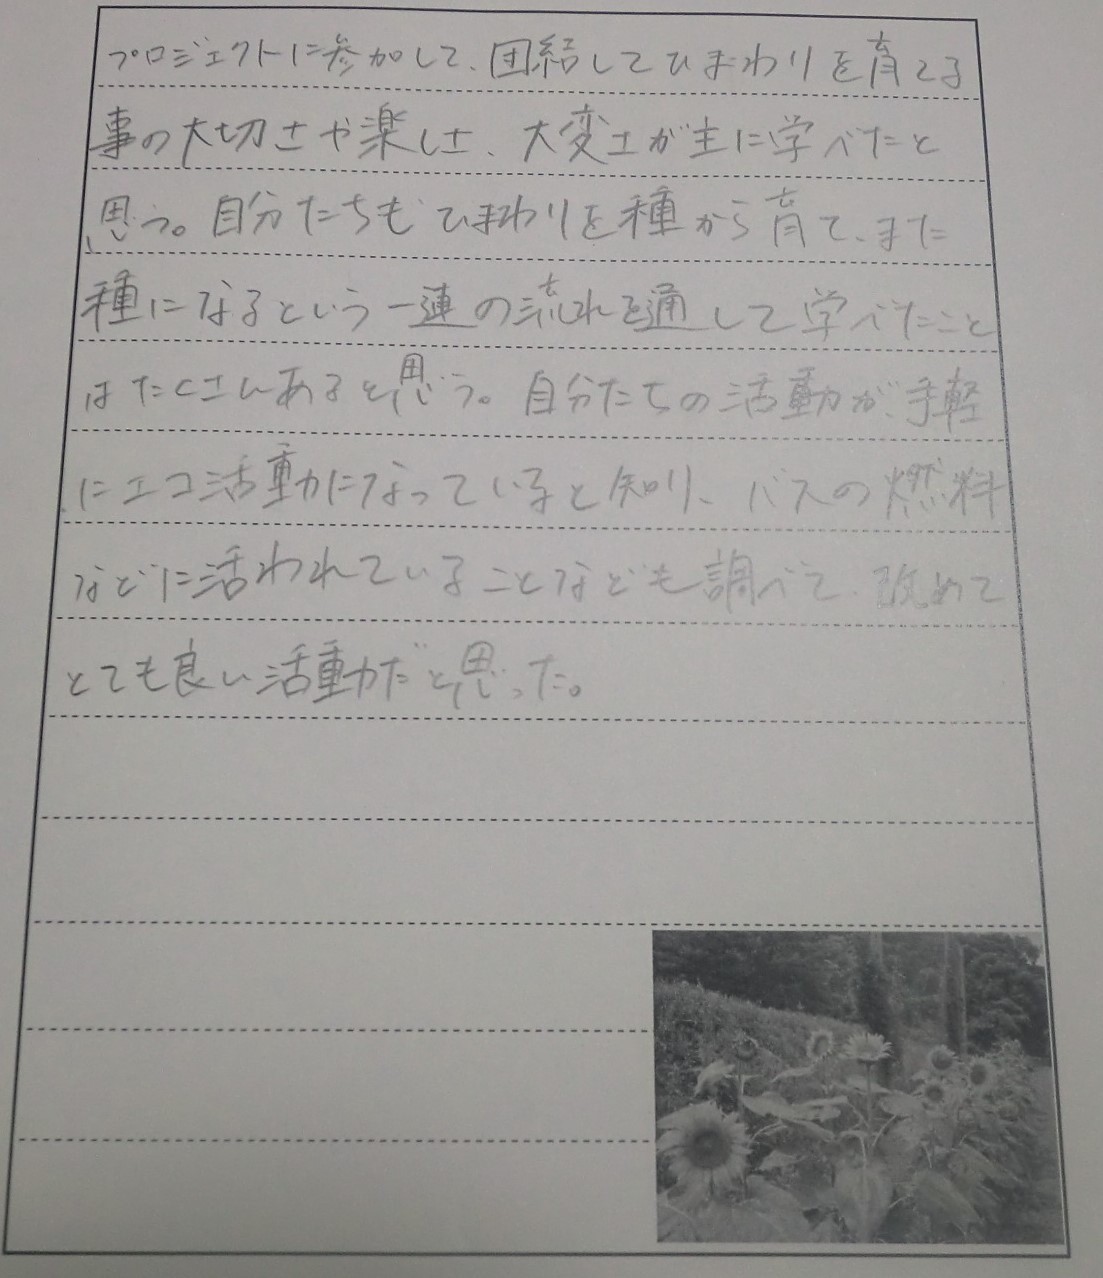 プロジェクトに参加して、団結してひまわりを育てる
事の大切さや楽しさ、大変さが主に学べたと
思う。自分たちもひまわりを種から育て、また
種になるという一連の流れを通して学べたこと
はたくさんあると思う。自分たちの活動が、手軽
にエコ活動になっていると知り、バスの燃料
などに活われていることなども調べて、改めて
とても良い活動だと思った。